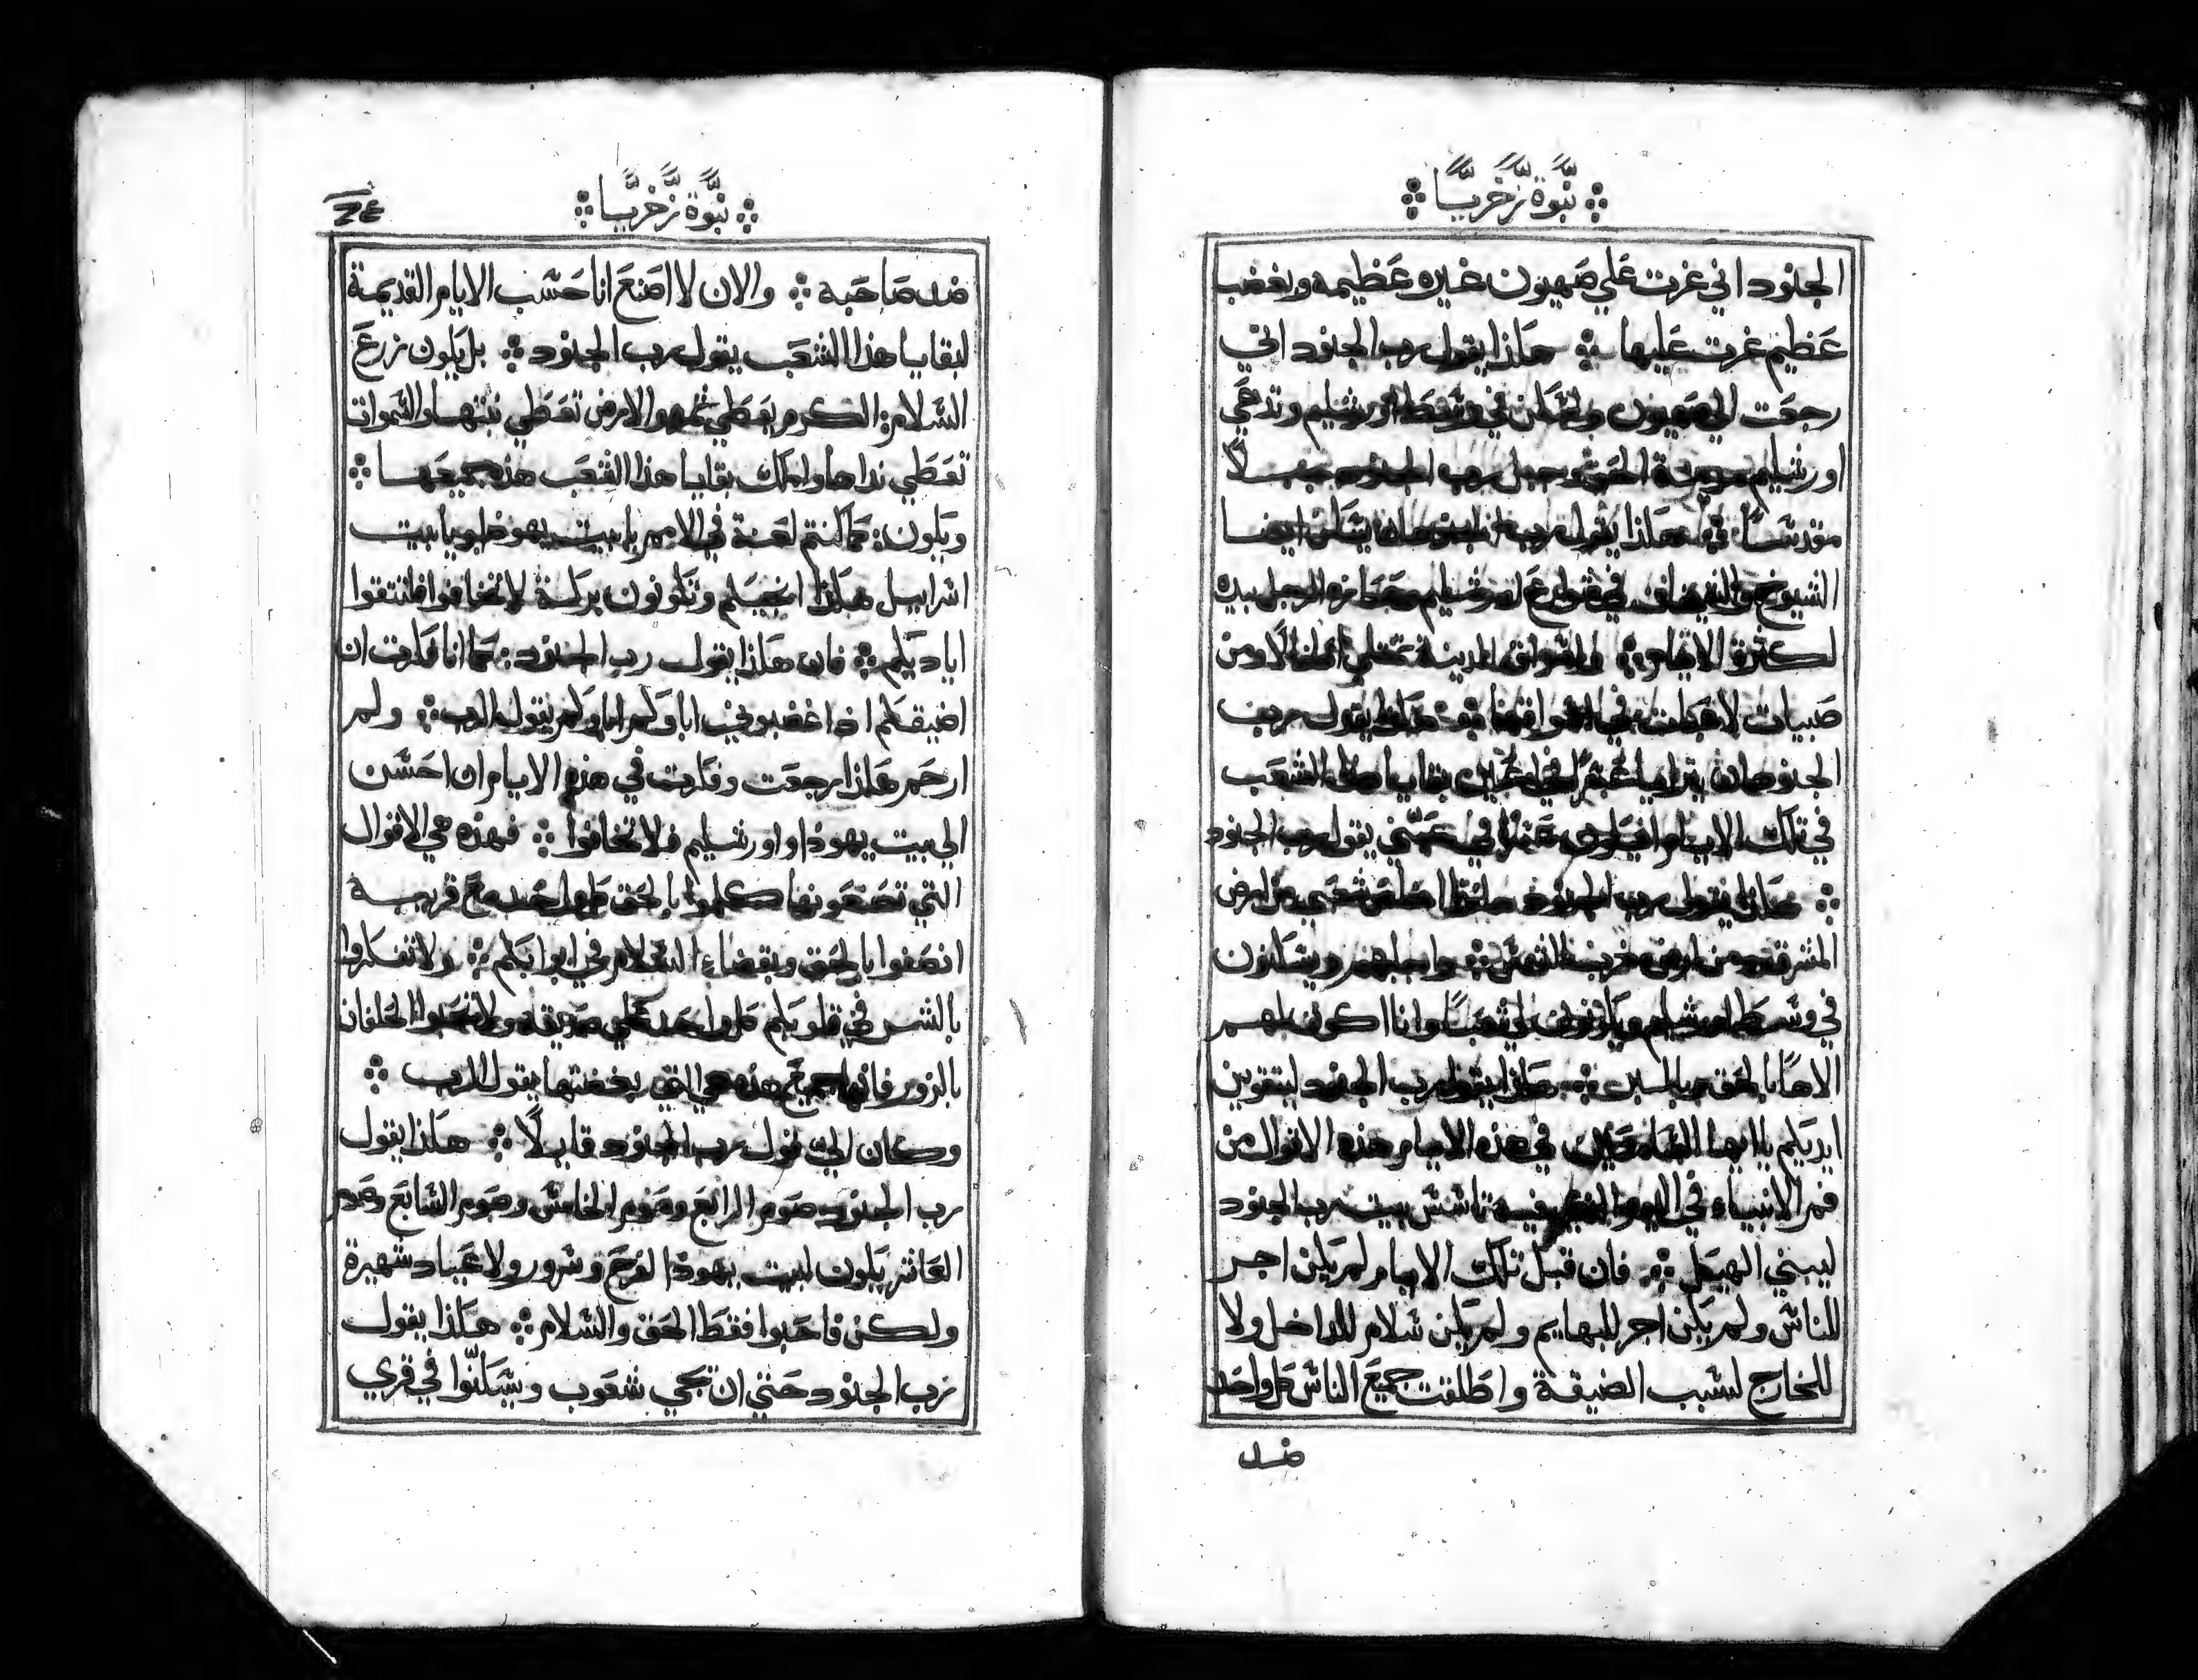 نبوة زخريا
الجنود اني غرت علي صهيون غيره عظيمه وبغضب
عظيم غرت عليها ܀ هكذا يقول رب الجنود اني
رجعت الي صهيون واسكن في وسط اورشليم وتدعي
اورشليم مدينة الحق وجبل رب الجنود جبلا
مقدسا ܀ هكذا يقول رب الجنود ايضا
الشيوخ في شوارع اورشليم الرجل بيده
لكثرة الايام ܀ واسواق المدينة تمتلي اطفالا ومن
صبيات لاعبات في اسواقها ܀ هكذا يقول رب
الجنود ان بقايا هذا الشعب
في تلك الايام في عيني يقول رب الجنود
܀ هكذا يقول رب الجنود هانذا اخلص شعبي من ارض
المشرق ومن ارض غرب الشمس ܀ واجلبهم ويسكنون
في وسط اورشليم ويكونون لي شعبا وانا اكون لهم
الاها بالحق وبالبر ܀ هكذا يقول رب الجنود لتتقوين
ايديكم يا ايها السامعين في هذه الايام هذه الاقوال من
فم الانبياء في اليوم الذي فيه تاسس بيت رب الجنود
ليبني الهيكل ܀ فان قبل تلك الايام لم يكن اجر
للناس ولم يكن اجر للبهايم ولم يكن سلام للداخل ولا
للخارج لسبب الضيقة واطلقت جميع الناس كل واحد
ضد
نبوة زخريا
ضد صاحبه ܀ والان لا اصنع انا حسب الايام القديمة
لبقايا هذا الشعب يقول رب الجنود ܀ بل يكون زرع
السلامة الكرم يعطي ثمره والارض تعطي نبتها والسموات
تعطي نداها واملك بقايا هذا الشعب هذه جميعها ܀
ويكون كما كنتم لعنة في الامم يا بيت يهوذا ويا بيت
اسراييل هكذا انجيكم وتكونون بركة لا تخافوا فلتتقوا
اياديكم ܀ فان هكذا يقول رب الجنود كما انا فكرت ان
اضيقكم اذا غضبوني اباوكم يقول الرب ܀ ولم
ارحم هكذا رجعت وفكرت في هذه الايام ان احسن
الي بيت يهوذا واورشليم فلا تخافوا ܀ فهذه هي الاقوال
التي تصنعونها كلموا بالحق كل واحد مع قريبه
انصفوا بالحق وبقضاء السلام في ابوابكم ܀ ولا تفكروا
بالشر في قلوبكم كل واحد علي صديقه ولا تحبوا الحلفان
بالزور فانها جميع هذه هي التي ببغضتها يقول الرب ܀
وكان الي قول رب الجنود قايلا ܀ هكذا يقول
رب الجنود صوم الرابع وصوم الخامس وصوم السابع وصوم
العاشر يكون لبيت يهوذا لفرح وسرور ولاعياد شهيرة
ولكن فاحبوا فقط الحق والسلام ܀ هكذا يقول
رب الجنود حتي ان تجي شعوب ويسكنوا في قري